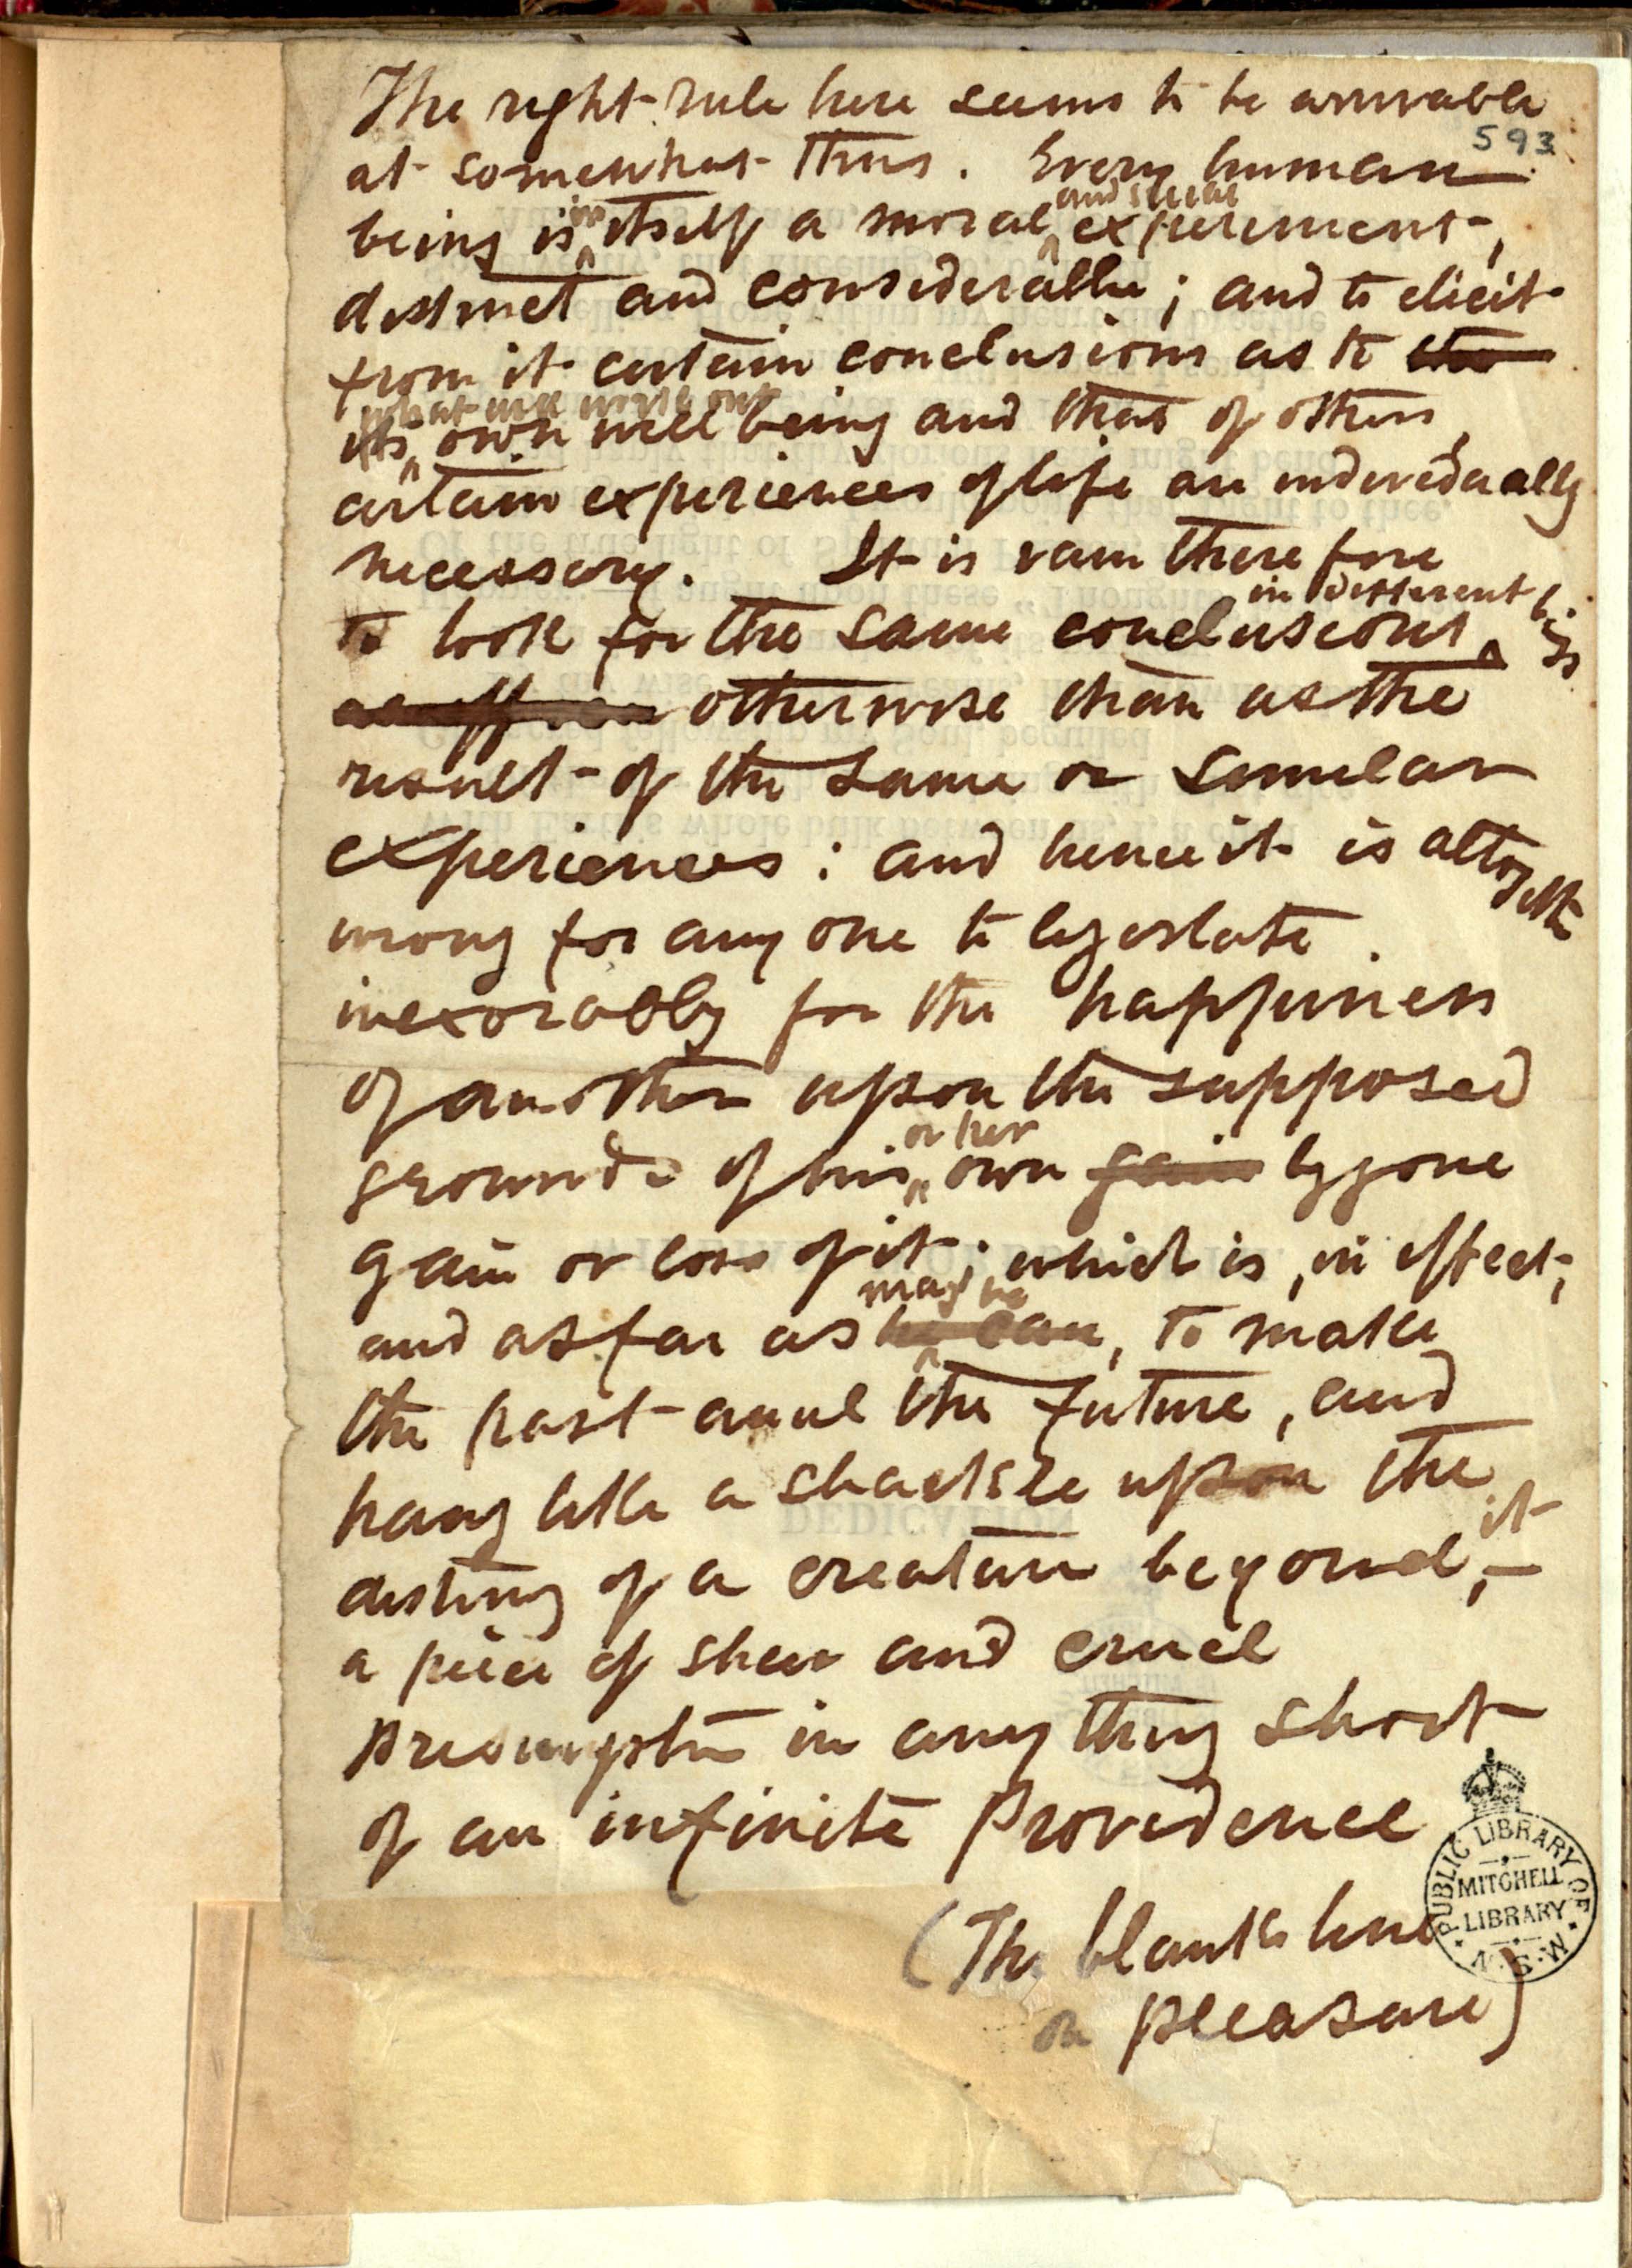 The right rule here seems to be arrivable
593
at somewhat thus. Every human
being is in itself a moral and social experiment,
distinct and considerable; and to elicit
from it certain conclusions as to the
its what will work out own well being and that of others,
certain experiences of life are individually
necessary. It is vain therefore
to look for the same conclusions in different beings
otherwise than as the
result of the same or similar
experiences: and hence it is altogether
wrong for any one to legislate
inexorably for the happiness
of another upon the supposed
grounds of his or her own gain bygone
gain or loss of it; which is, in effect,
and as far as he can may be, to make
the past anul the future, and
hang like a shackle upon the
destiny of a creature beyond it,—
a piece of sheer and cruel
presumption in any thing short
of an infinite Providence
(The blank line
on pleasure)
PUBLIC LIBRARY OF N.S.W.
MITCHELL
LIBRARY
DEDICATION